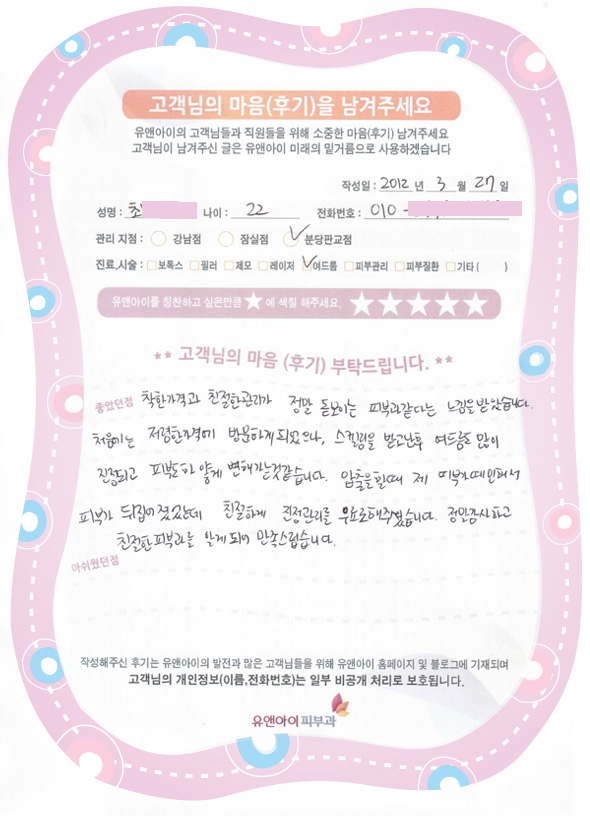 고객님의 마음(후기)을 남겨주세요
유앤아이의 고객님들과 직원들을 위해 소중한 마음(후기) 남겨주세요
고객님이 남겨주신 글은 유앤아이 미래의 밑거름으로 사용하겠습니다
작성일 : 2012 년 3 월 27 일
성명 : 최 나이 : 22 전화번호 : 010 -
관리 지점 : 강남점 잠실점 분당판교점
진료,시술 : 보톡스 필러 제모 레이저 여드름 피부관리 피부질환 기타 ( )
유앤아이를 칭찬하고 싶은만큼 ★ 에 색칠 해주세요. ★★★★★
** 고객님의 마음 (후기) 부탁드립니다. **
좋았던점 착한가격과 친절한관리가 정말 돋보이는 피부과같다는 느낌을받았습니다.
처음에는 저렴한가격에 방문하게되었으나, 스킬링을 받고난후 여드름도 많이
진정되고 피부톤도 하얗게 변해가는것같습니다. 압출을할때 제 피부가예민해서
피부가 뒤집어졌었는데 친절하게 진정관리를 무료로해주셨습니다. 정말감사하고
친절한피부과를 알게되어 만족스럽습니다.
아쉬웠던점
작성해주신 후기는 유앤아이의 발전과 많은 고객님들을 위해 유앤아이 홈페이지 및 블로그에 기재되며
고객님의 개인정보(이름,전화번호)는 일부 비공개 처리로 보호됩니다.
유앤아이피부과